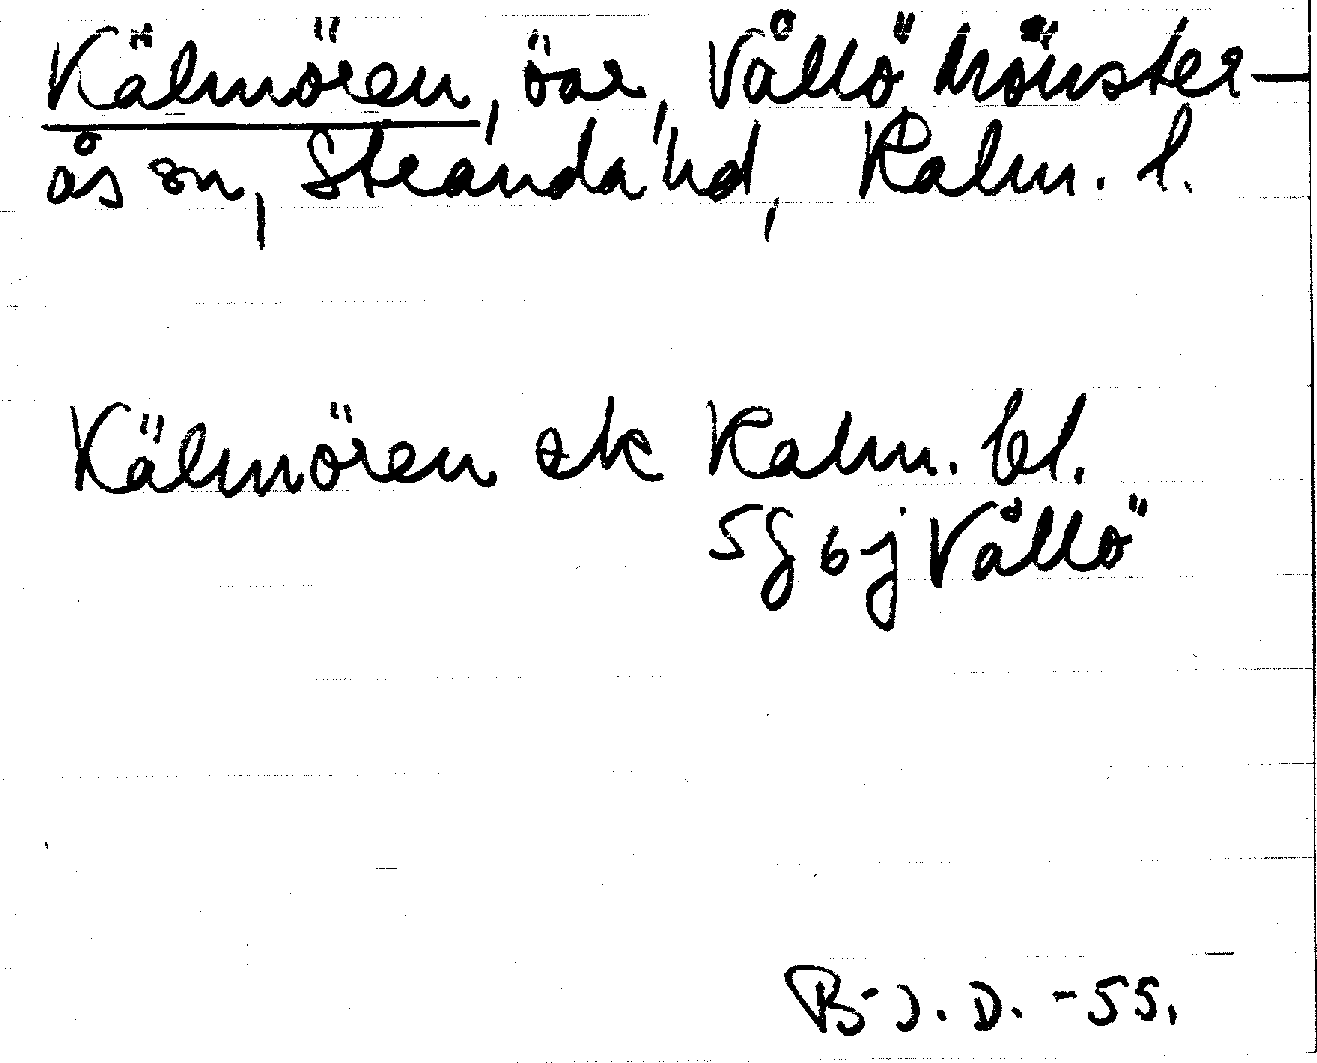 Kälmören, öar, Vållö Mönster-
ås sn, Stranda hd, Kalm. l.
Kälmören ek Kalm. bl.
5g6j Vållö
B-J. D. -55.